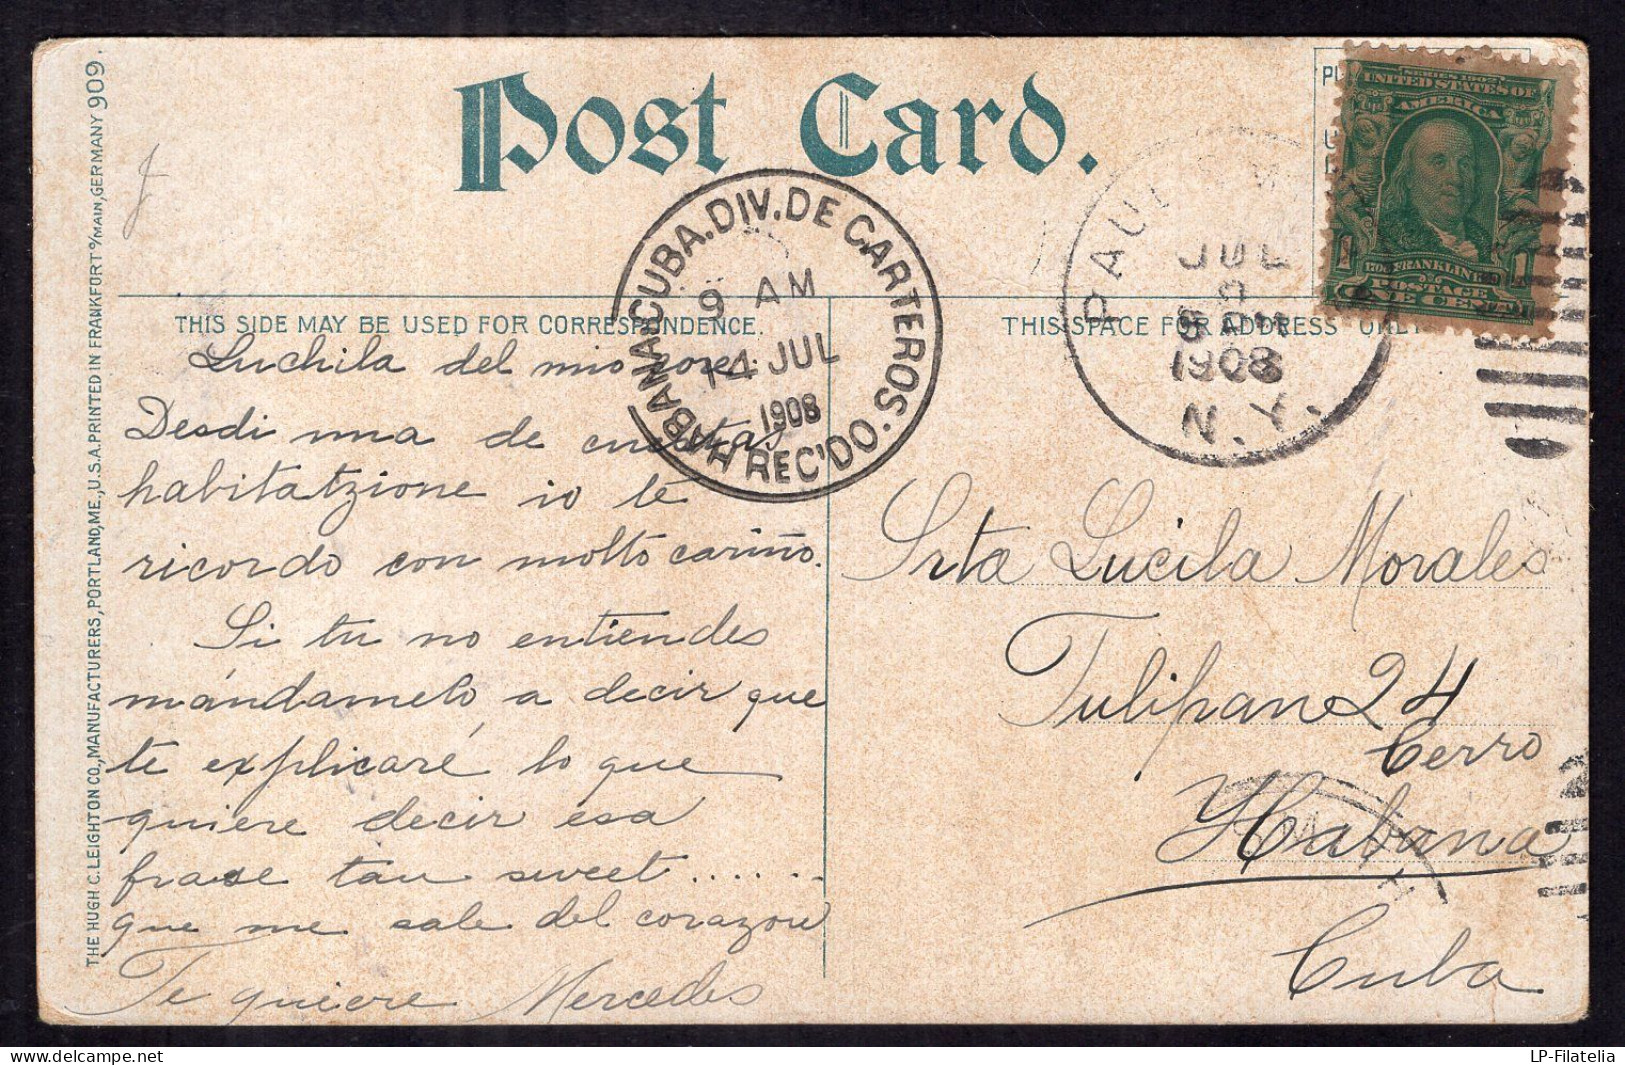 THE HUGH C. LEIGHTON CO., MANUFACTURERS, PORTLAND, ME., U.S.A. PRINTED IN FRANKFORT o/MAIN, GERMANY 909.
Post Card.
SERIES 1902
UNITED STATES OF
AMERICA
FRANKLIN
POSTAGE
ONE CENT
HABANA CUBA. DIV. DE CARTEROS. REC'DO.
9 AM
14 JUL
1908
JUL
1908
N.Y.
THIS SIDE MAY BE USED FOR CORRESPONDENCE.
THIS SPACE FOR ADDRESS ONLY
Luchila del mio core
Desdi una de cuestas
habitatzione io te
ricordo con molto cariño.
Si tu no entiendes
mándamelo a decir que
te explicaré lo que
quiere decir esa
frase tan sweet......
que me sale del corazon
Te quiere Mercedes
Srta Lucila Morales
Tulipan 24
Cerro
Habana
Cuba
LP-Filatelia